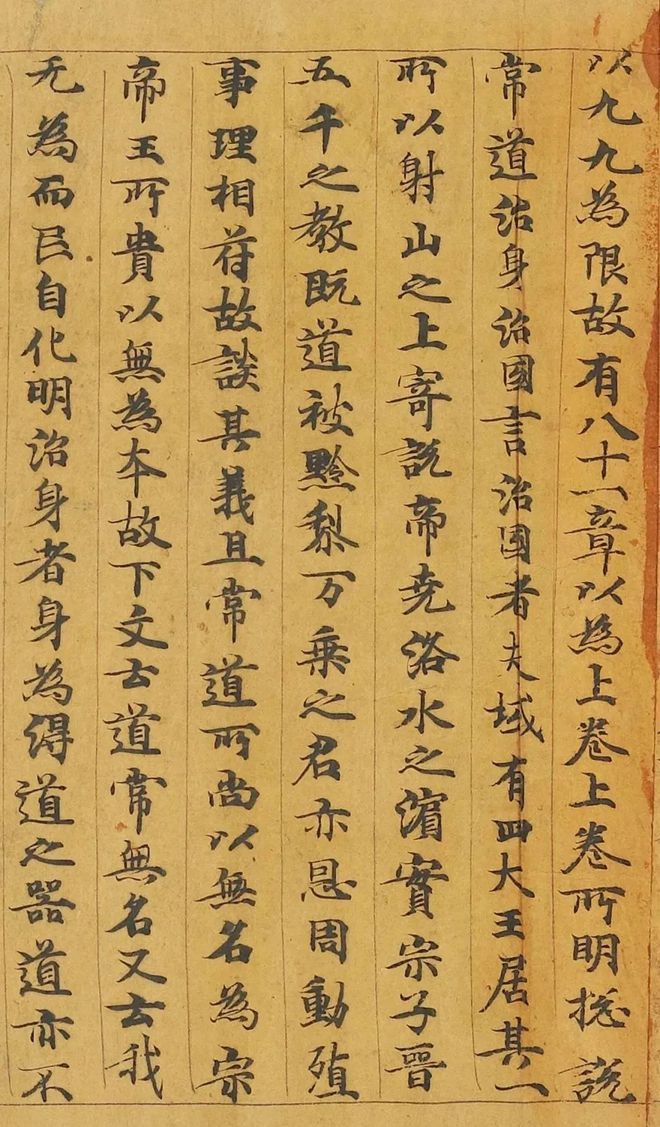 以九九為限故有八十一章以為上卷上卷所明揔說
常道治身治國言治國者夫域有四大王居其一
所以射山之上寄說帝堯洛水之濵實宗子晋
五千之教既道被黔梨万乗之君亦恩周動殖
事理相苻故談其義且常道所尚以無名為宗
帝王所貴以無為本故下文云道常無名又云我
无為而民自化明治身者身為得道之器道亦不